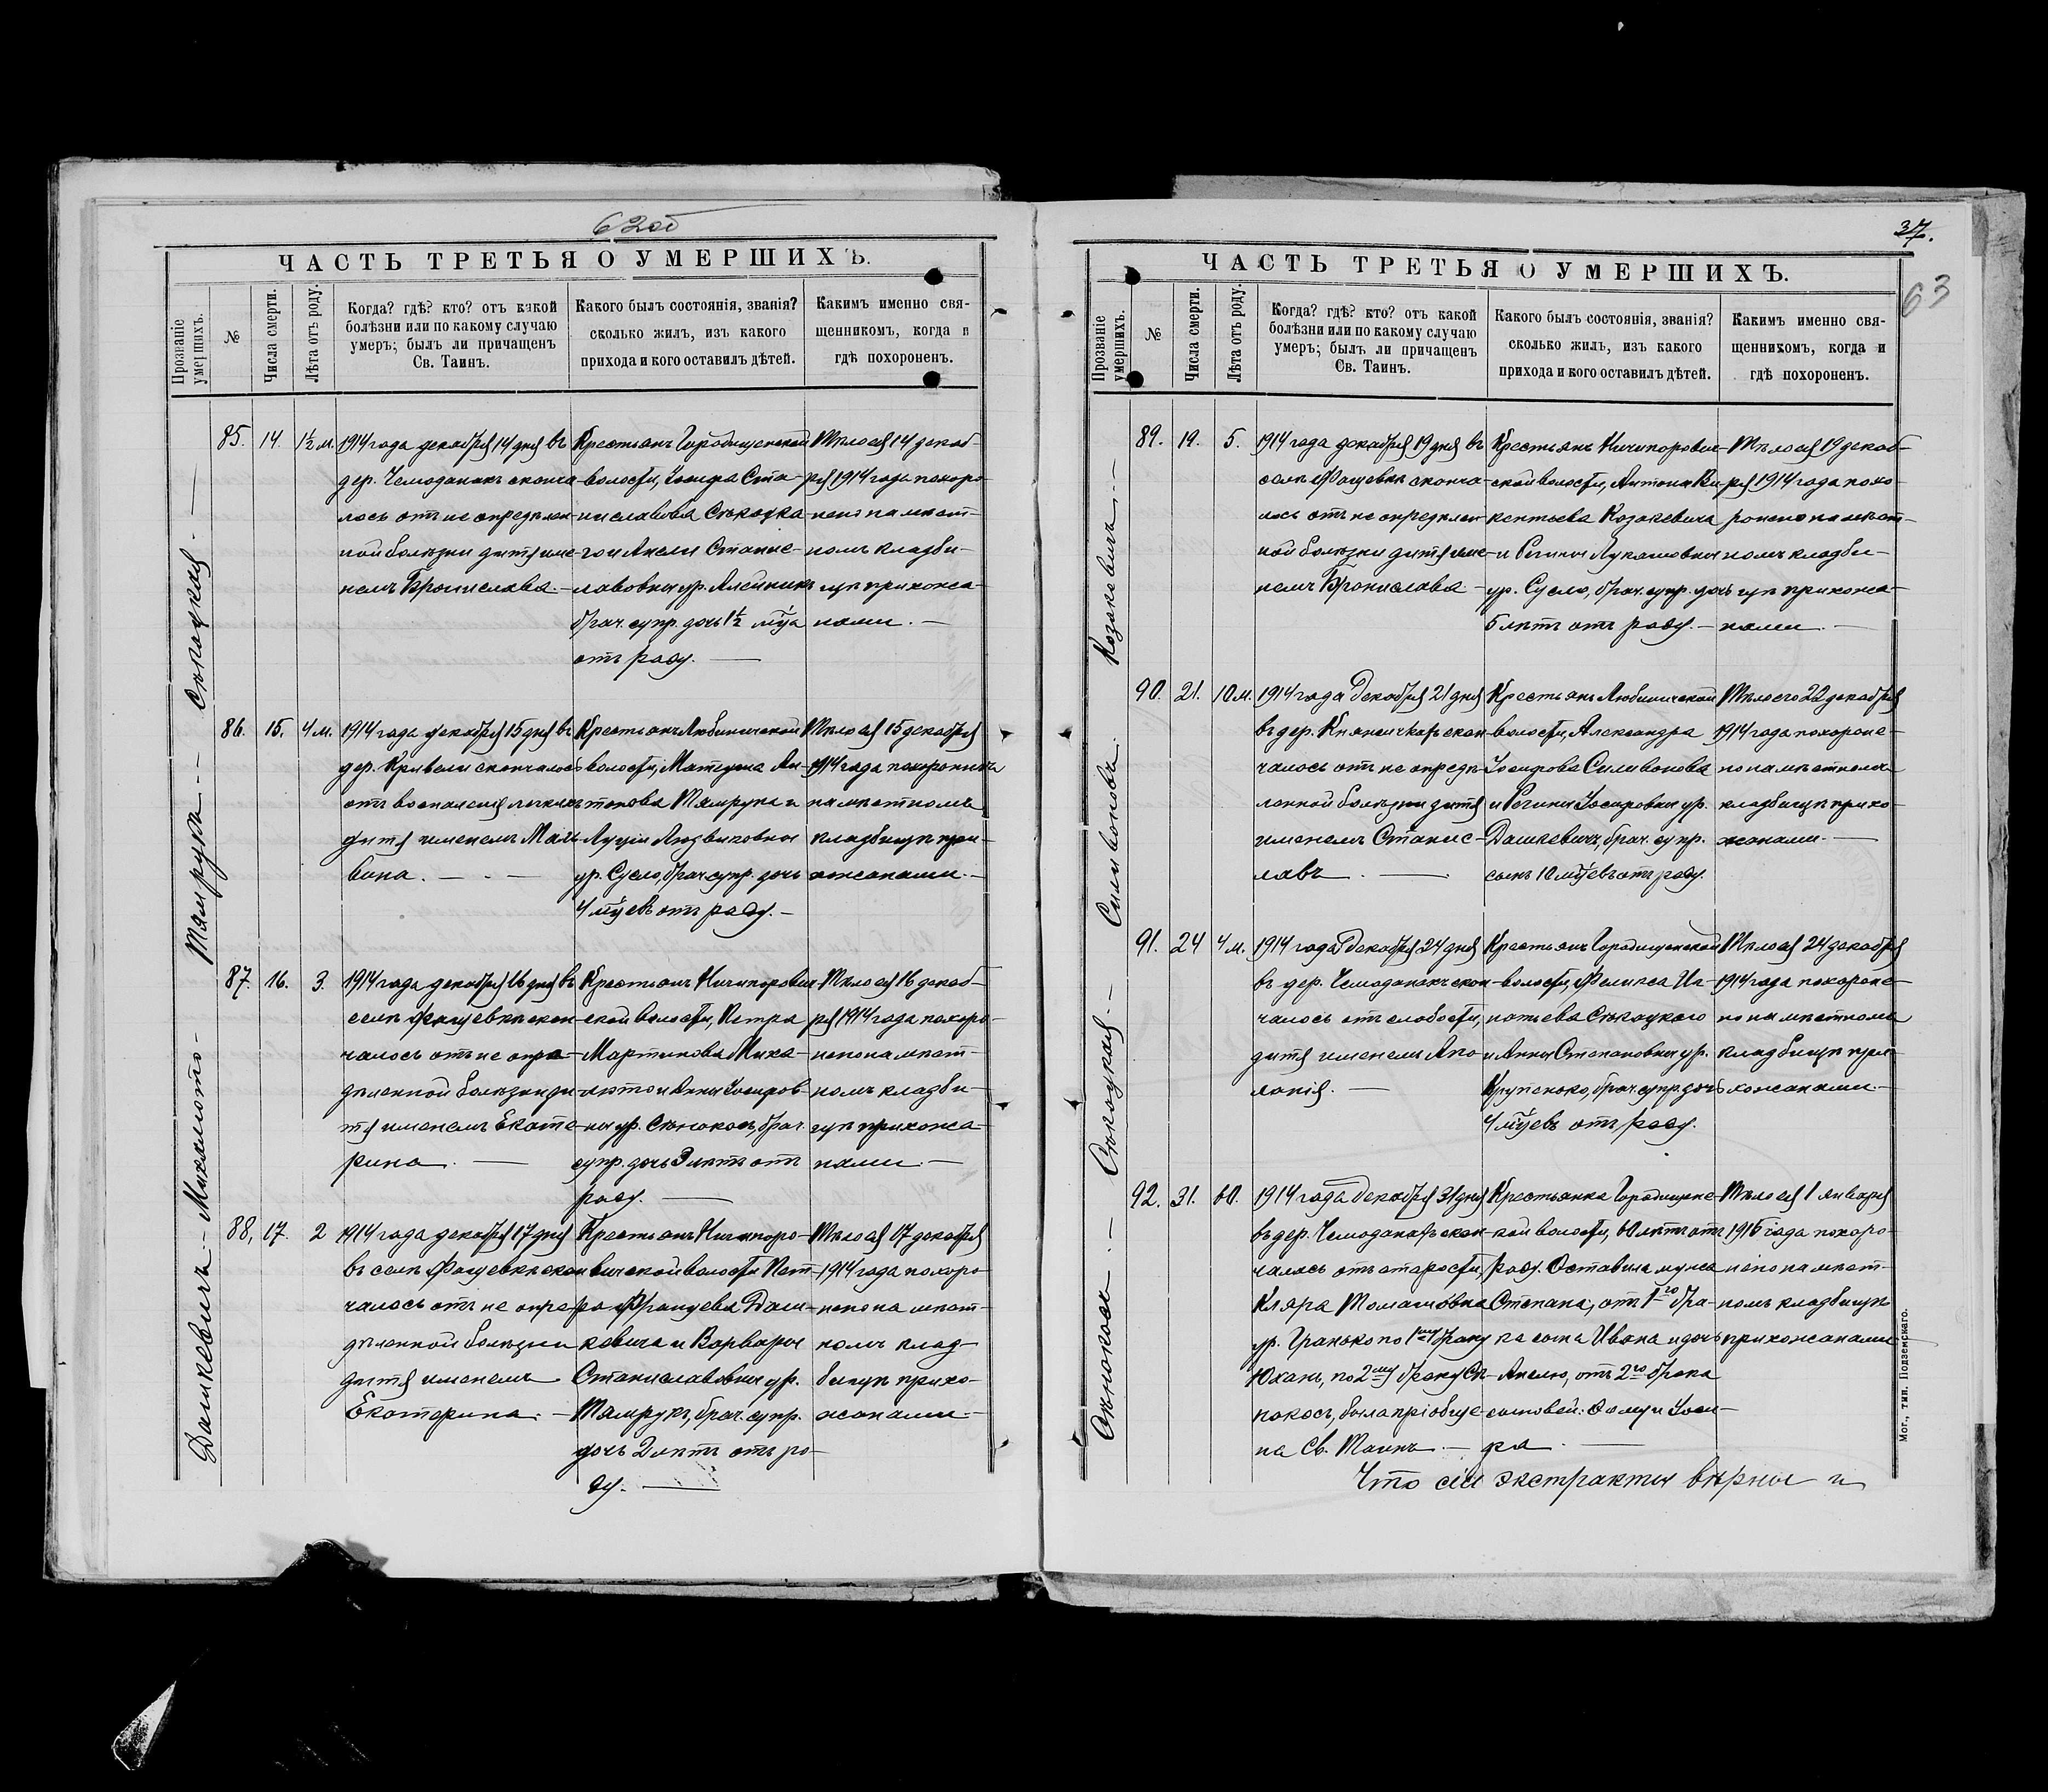 62об
ЧАСТЬ ТРЕТЬЯ О УМЕРШИХЪ.
Прозваніе умершихъ.
№
Числа смерти.
Лѣта отъ роду.
Когда? гдѣ? кто? отъ какой
болѣзни или по какому случаю
умеръ; былъ ли причащенъ
Св. Таинъ.
Какого былъ состоянія, званія?
сколько жилъ, изъ какого
прихода и кого оставилъ дѣтей.
Какимъ именно свя-
щенникомъ, когда и
гдѣ похороненъ.
Сѣкоцкая.
85. 14. 1½ м.
1914 года декабря 14 дня въ
дер. Чемоданахъ сконча
лось отъ не опредѣлен-
ной болѣзни дитя име-
немъ Бронислава.
Крестьянъ Городищенской
волости, Іосифа Ста-
ниславова Сѣкоцка-
го и Анели Станис-
лавовны ур. Алейникъ
брач. супр. дочь 1½ м-ца
отъ роду.
Тѣло ея 14 декаб-
ря 1914 года похоро-
нено на мѣст-
номъ кладби-
щѣ прихожа-
нами.
Тямрука
86. 15. 4 м.
1914 года декабря 15 дня въ
дер. Кривели скончалось
отъ воспаленія легкихъ
дитя именемъ Маль
вина.
Крестьянъ Любиничской
волости, Матеуша Ан-
тонова Тямрука и
Луціи Людвиковны
ур. Сусло, брач. супр. дочь
4 м-цевъ отъ роду.
Тѣло ея 15 декабря
1914 года похоронена
на мѣстномъ
кладбищѣ при-
хожанами.
Михалюто
87. 16. 3.
1914 года декабря 16 дня въ
селѣ Фащевкѣ скон-
чалось отъ не опре-
дѣленной болѣзни ди
тя именемъ Екате-
рина.
Крестьянъ Ничипорович-
ской волости, Петра
Мартинова Миха-
люто и Анны Іосифов-
ны ур. Сѣнокосъ, брач.
супр. дочь 3 лѣтъ отъ
роду.
Тѣло ея 16 декаб-
ря 1914 года похоро-
нено на мѣст-
номъ кладби-
щѣ прихожа-
нами.
Дашкевичъ
88. 17. 2
1914 года декабря 17 дня
въ селѣ Фащевкѣ скон
чалось отъ не опре-
дѣленной болѣзни
дитя именемъ
Екатерина.
Крестьянъ Ничипоро-
вичской волости Пет-
ра Францева Даш-
кевича и Варвары
Станиславовны ур.
Тямрукъ, брач. супр.
дочь 2 лѣтъ отъ ро-
ду.
Тѣло ея 17 декабря
1914 года похоро-
нено на мѣст-
номъ клад-
бищѣ прихо-
жанами.
37.
63
ЧАСТЬ ТРЕТЬЯ О УМЕРШИХЪ.
Прозваніе умершихъ.
№
Числа смерти.
Лѣта отъ роду.
Когда? гдѣ? кто? отъ какой
болѣзни или по какому случаю
умеръ; былъ ли причащенъ
Св. Таинъ.
Какого былъ состоянія, званія?
сколько жилъ, изъ какого
прихода и кого оставилъ дѣтей.
Какимъ именно свя-
щенникомъ, когда и
гдѣ похороненъ.
Козакевичъ.
89. 19. 5.
1914 года декабря 19 дня въ
селѣ Фащевкѣ сконча-
лось отъ не опредѣлен-
ной болѣзни дитя име-
немъ Бронислава
Крестьянъ Ничипорович-
ской волости, Антона Ви
кентьева Козакевича
и Регины Лукашовны
ур. Сусло, брач. супр. дочь
5 лѣтъ отъ роду.
Тѣло ея 19 декаб-
ря 1914 года похо-
ронено на мѣст-
номъ кладби-
щѣ прихожа-
нами.
Силивоновъ.
90. 21. 10 м.
1914 года Декабря 21 дня
въ дер. Княжичкахъ скон
чалось отъ не опредѣ-
ленной болѣзни дитя
именемъ Станис-
лавъ
Крестьянъ Любиничской
волости, Александра
Іосифова Силивонова
и Регины Іосифовны ур.
Дашкевичъ, брач. супр.
сынъ 10 м-цевъ отъ роду.
Тѣло его 22 декабря
1914 года похороне-
но на мѣстномъ
кладбищѣ прихо-
жанами.
Сѣкоцкая
91. 24 4 м.
1914 года Декабря 24 дня
въ дер. Чемоданахъ скон
чалось отъ слабости,
дитя именемъ Апо-
лонія.
Крестьянъ Городищенской
волости, Феликса Иг-
натьева Сѣкоцкого
и Анны Степановны ур.
Крупенько, брач. супр. дочь
4 м-цевъ отъ роду.
Тѣло ея 24 декабря
1914 года похороне-
но на мѣстномъ
кладбищѣ при-
хожанами.
Сѣнокосъ.
92. 31. 60.
1914 года Декабря 31 дня
въ дер. Чемоданахъ скон-
чалась отъ старости,
Кляра Томашовна
ур. Гранько по 1му браку
Юхань, по 2му браку Сѣ-
нокосъ, была пріобще-
на Св. Таинъ.
Крестьянка Городищенс-
кой волости, 60 лѣтъ отъ
роду. Оставила мужа
Степана, отъ 1го бра-
ка сына Ивана и дочь
Анелю, отъ 2го брака
сыновей: Ѳому и Іоси-
фа
Тѣло ея 1 января
1915 года похоро-
нено на мѣст-
номъ кладбищѣ
прихожанами.
Что сіи экстракты вѣрны и
Мог., тип. Подземскаго.